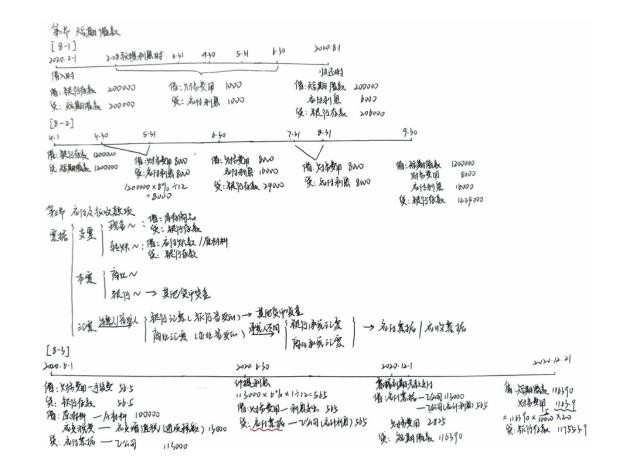 第1节 短期借款
[8-1]
2020.2.1 2.28 计提利息时 3.31 4.30 5.31 6.30 2020.8.1
借入时 归还时
借:银行存款 200000 借:财务费用 1000 借:短期借款 200000
贷:短期借款 200000 贷:应付利息 1000 应付利息 6000
贷:银行存款 206000
[8-2]
4.1 4.30 5.31 6.30 7.31 8.31 9.30
借:银行存款 1200000 借:财务费用 8000 借:财务费用 8000 借:财务费用 8000 借:短期借款 1200000
贷:短期借款 1200000 贷:应付利息 8000 应付利息 16000 贷:应付利息 8000 财务费用 8000
1200000×8%÷12 贷:银行存款 24000 应付利息 16000
=8000 贷:银行存款 1224000
第2节 应付及预收款项
票据 支票 现金~:借:库存商品
贷:银行存款
转账~:借:应付账款/原材料
贷:银行存款
本票 商业~
银行~ → 其他货币资金
汇票 银行汇票(银行签发的) → 其他货币资金
商业汇票(企业签发的) 承兑人不同 银行承兑汇票 → 应付票据/应收票据
商业承兑汇票
[8-3]
2020.6.30 2020.12.1 2020.12.21
借:财务费用—手续费 56.5 计提利息
贷:银行存款 56.5 113000×6%×1÷12=565 借:应付票据—乙公司 113000
借:原材料—A材料 100000 借:财务费用—利息支出 565 —乙公司(应计利息) 565
应交税费—应交增值税(进项税额) 13000 贷:应付票据—乙公司(应计利息) 565 财务费用 2825
贷:应付票据—乙公司 113000 贷:短期借款 116390
借:短期借款 116390
贷:银行存款